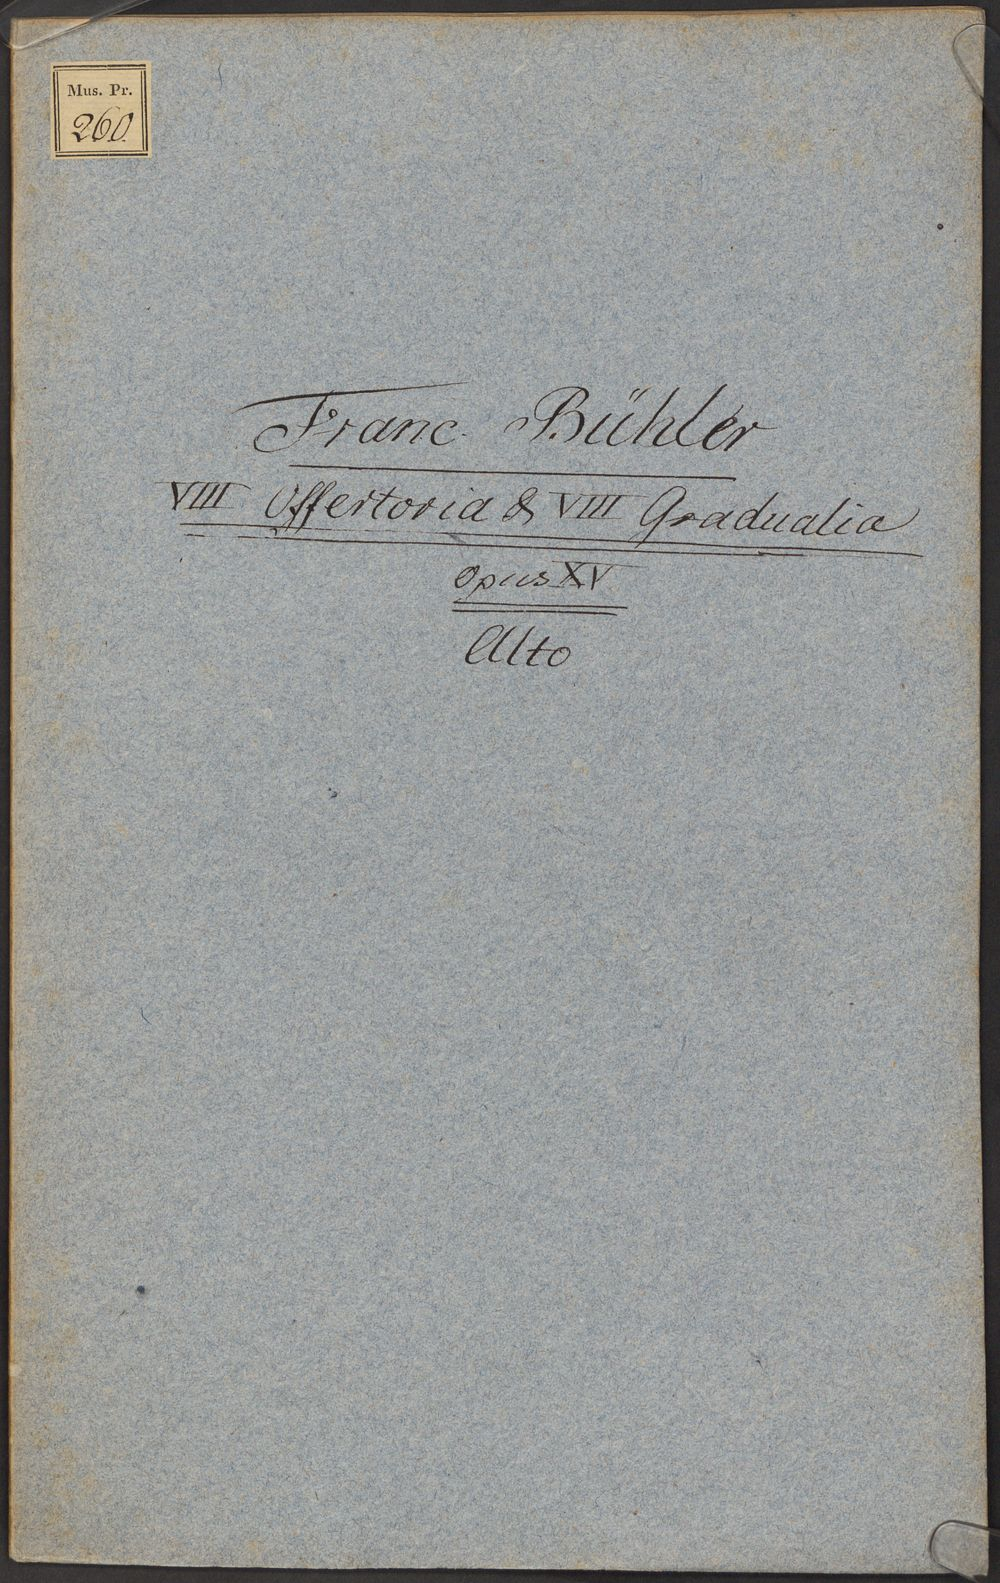 Mus. Pr.
260.
Franc. Bühler
VIII Offertoria & VIII Gradualia
Opus XV.
Alto